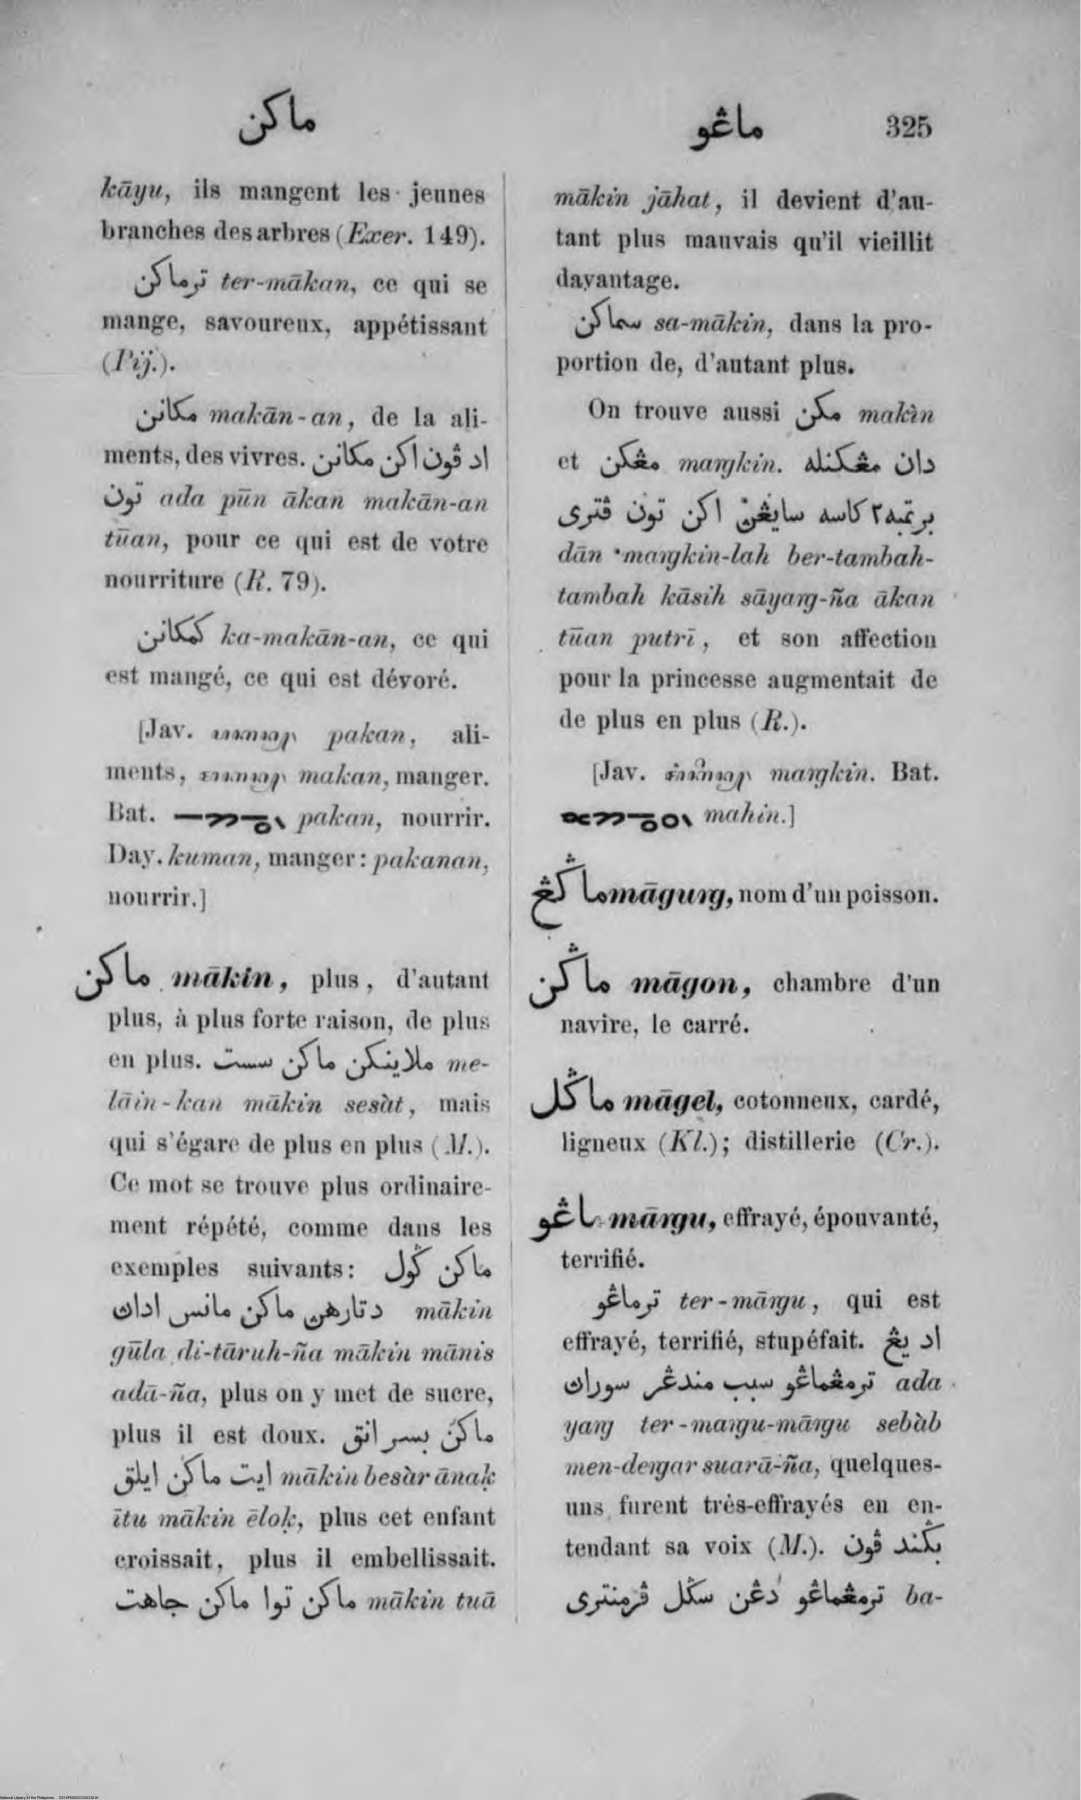 ماكن
ماڠو
325
kāyu, ils mangent les jeunes
branches des arbres (Exer. 149).
ترماكن ter-mākan, ce qui se
mange, savoureux, appétissant
(Pij.).
مكانن makān-an, de la ali-
ments, des vivres. اد ڤون اكن مكانن
تون ada pūn ākan makān-an
tūan, pour ce qui est de votre
nourriture (R. 79).
كمكانن ka-makān-an, ce qui
est mangé, ce qui est dévoré.
[Jav. pakan, ali-
ments, makan, manger.
Bat. pakan, nourrir.
Day. kuman, manger: pakanan,
nourrir.]
ماكن mākin, plus, d'autant
plus, à plus forte raison, de plus
en plus. ملاينكن ماكن سست me-
lāin-kan mākin sesàt, mais
qui s'égare de plus en plus (M.).
Ce mot se trouve plus ordinaire-
ment répété, comme dans les
exemples suivants: ماكن ݢول
دتارهن ماكن مانس ادان mākin
gūla di-tāruh-ña mākin mānis
adā-ña, plus on y met de sucre,
plus il est doux. ماكن بسر انق
ايت ماكن ايلق mākin besàr ānaḳ
ītu mākin ēloḳ, plus cet enfant
croissait, plus il embellissait.
ماكن توا ماكن جاهت mākin tuā
mākin jāhat, il devient d'au-
tant plus mauvais qu'il vieillit
davantage.
سماكن sa-mākin, dans la pro-
portion de, d'autant plus.
On trouve aussi مكن makìn
et مڠكن maŋkin. دان مڠكنله
برتمبه٢ كاسه سايڠڽ اكن تون ڤتري
dān maŋkin-lah ber-tambah-
tambah kāsih sāyaŋ-ña ākan
tūan putrī, et son affection
pour la princesse augmentait de
de plus en plus (R.).
[Jav. maŋkin. Bat.
mahin.]
ماݢڠ māguŋ, nom d'un poisson.
ماݢن māgon, chambre d'un
navire, le carré.
ماݢل māgel, cotonneux, cardé,
ligneux (Kl.); distillerie (Cr.).
ماڠو māŋu, effrayé, épouvanté,
terrifié.
ترماڠو ter-māŋu, qui est
effrayé, terrifié, stupéfait. اد يڠ
ترمڠماڠو سبب مندڠر سوران ada
yaŋ ter-maŋu-māŋu sebàb
men-deŋar suarā-ña, quelques-
uns furent très-effrayés en en-
tendant sa voix (M.). بݢند ڤون
ترمڠماڠو دڠن سݢل ڤرمنتري ba-